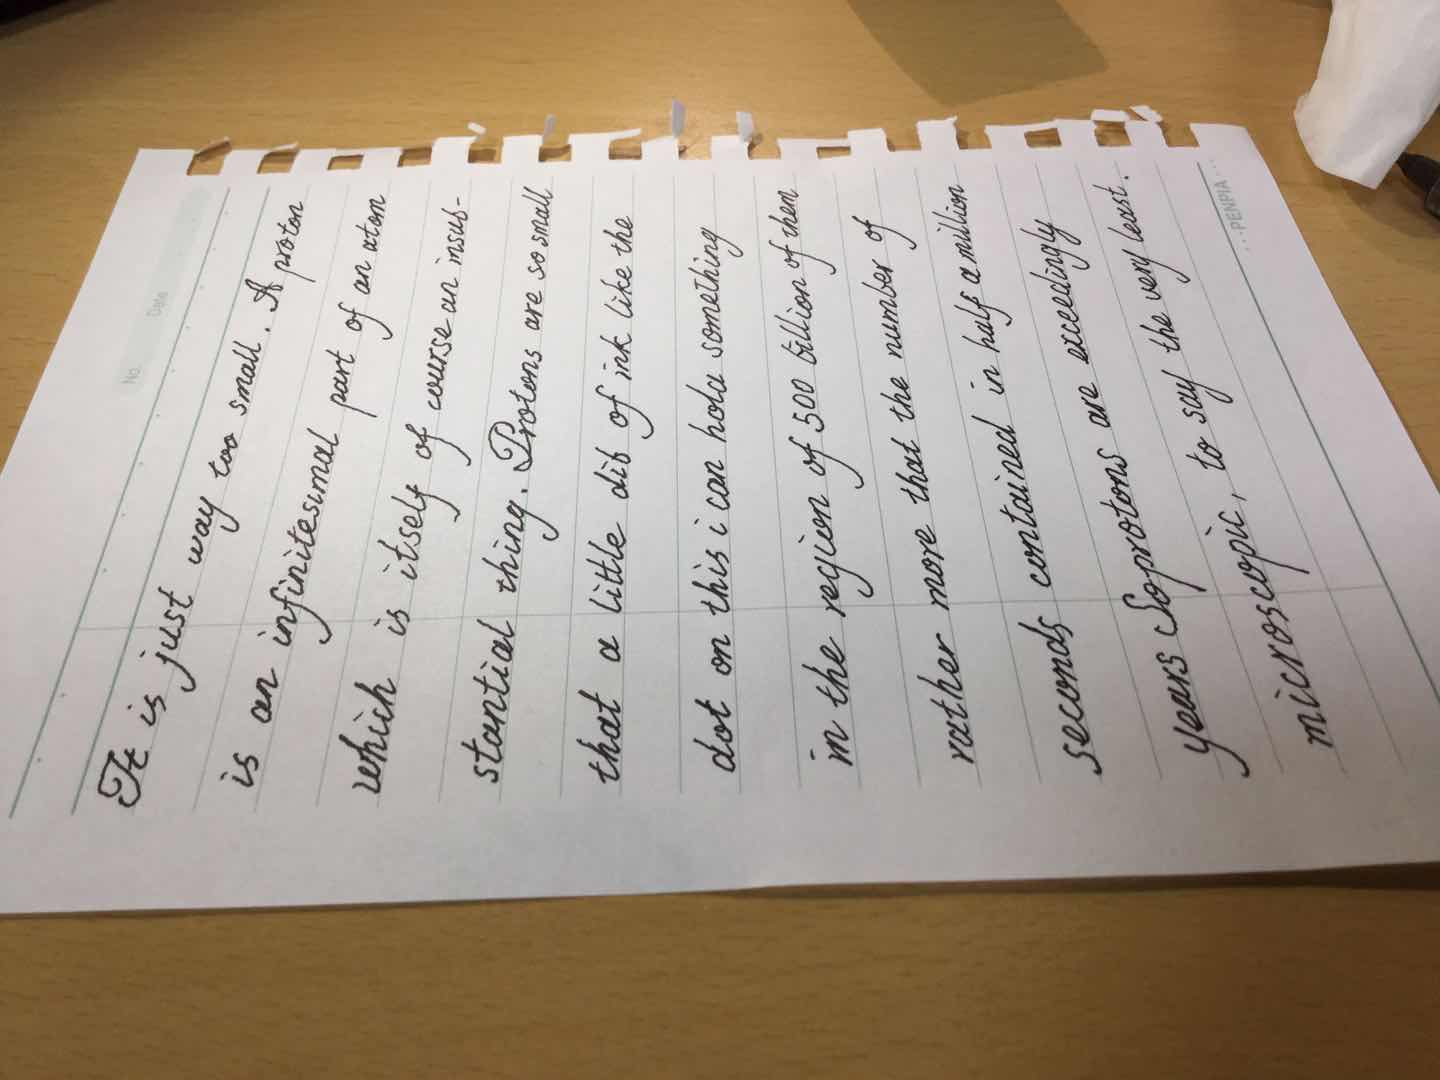 No.
Date
It is just way too small. A proton
is an infinitesimal part of an atom
which is itself of course an insub-
stantial thing. Protons are so small
that a little dib of ink like the
dot on this i can hold something
in the region of 500 billion of them
rather more that the number of
seconds contained in half a million
years So protons are exceedingly
microscopic, to say the very least.
PENPIA